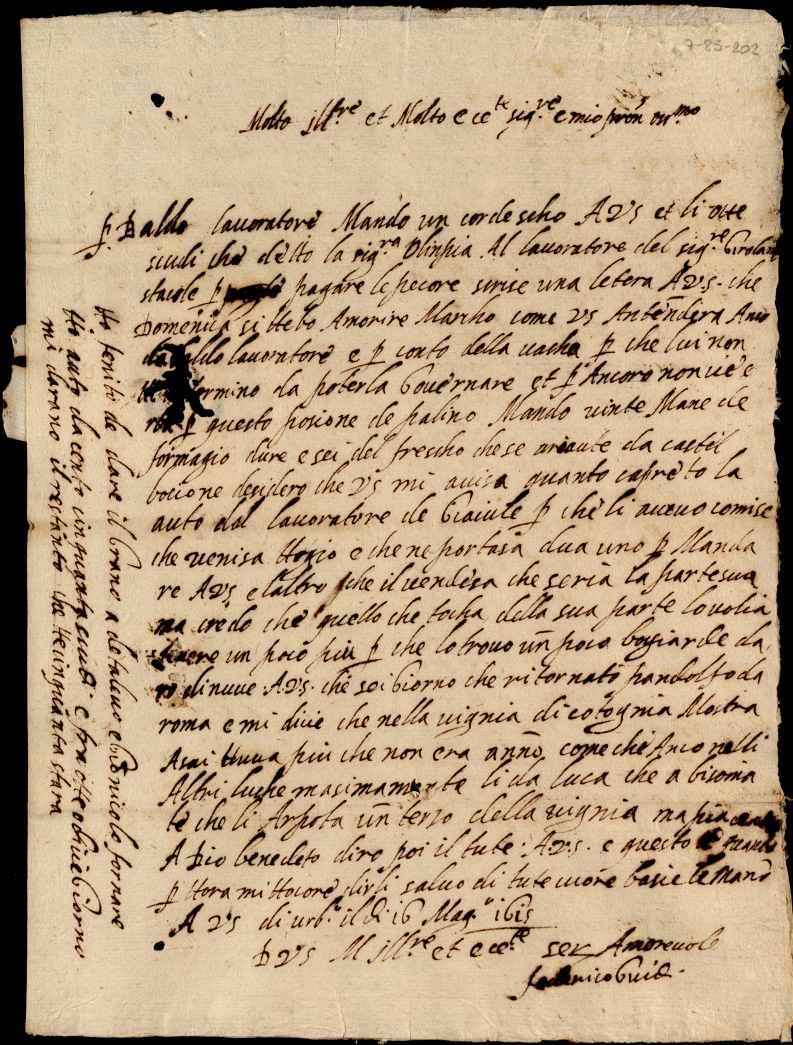 7-85-202
Molto Ill.re et Molto ecc.te sig.re e mio pron oss.mo
p Baldo lavoratore Mando un cordescho A VS et li otte
scudi che detto la sig.ra Olinpia Al lavoratore del sig.re Girolam
p pagare le pecore scrise una letera A VS. che
Domenica si Amorire Marcho come VS Antendera Anco
da Baldo lavoratore e p conto della vacha p che lui non
termino da poterla Governare et p Ancora non vi e
p questo posione de palino Mando vinte Mane de
formagio dure e sei del frescho che se da castel
bocione desidero che VS mi avisa quanto capreto la
auto dal lavoratore de p che li avevo comise
che venisa e che ne portasa dua uno p Manda
re A VS e laltro che il vendesa che seria la parte sua
ma credo che quello che tocha della sua parte lo volia
un poco piu p che lo trovo un poco bogiarde da
di nuve A VS. che sei giorno che ritornato pandolfo da
roma e mi dice che nella vignia di cotognia Mostra
Asai piu che non era anno come che Anco nelli
Altri luche masimamente li da luca che a bisonia
te che li Arpota un terzo della vignia ma
A Dio benedeto diro poi il tute A VS. e questo e quanto
p hora mi ocore dirli salvo di tute cuore basie le Mano
A VS di urb.o il di 16 Mag.o 1615
D VS M Ill.re et ecc.te ser Amorevole
federico Guide.
Ho fenito de dare il Grano a de talevo e Gio nicolo fornare
Ho auto da cento cinquanta scudi e fra otte o dice Giorno
mi darano il restante che he cinquanta stara